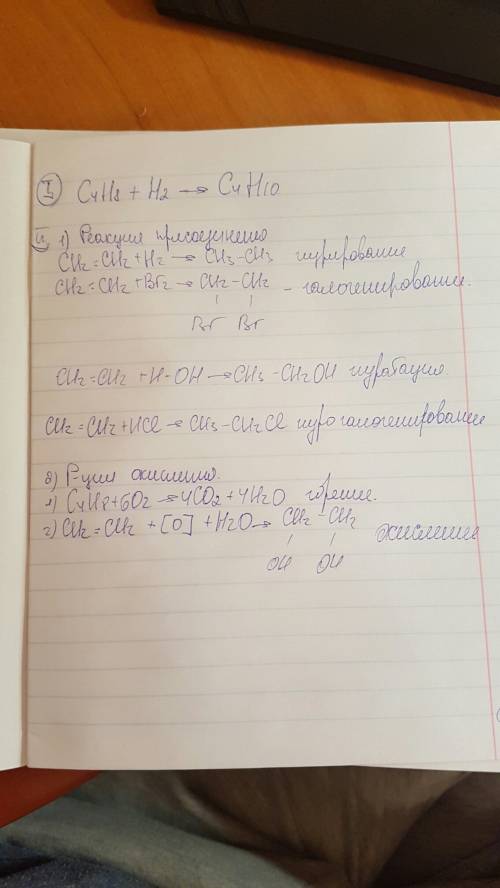 I C4H8 + H2 → C4H10
II 1) Реакция присоединения
CH2=CH2 + H2 → CH3-CH3 гидрирование
CH2=CH2 + Br2 → CH2-CH2 - галогенирование.
Br Br
CH2=CH2 + H-OH → CH3-CH2OH гидратация.
CH2=CH2 + HCl → CH3-CH2Cl гидрогалогенирование
2) Р-ции окисления.
1) C4H8 + 6O2 → 4CO2 + 4H2O горение.
2) CH2=CH2 + [O] + H2O → CH2-CH2 окисление
OH OH